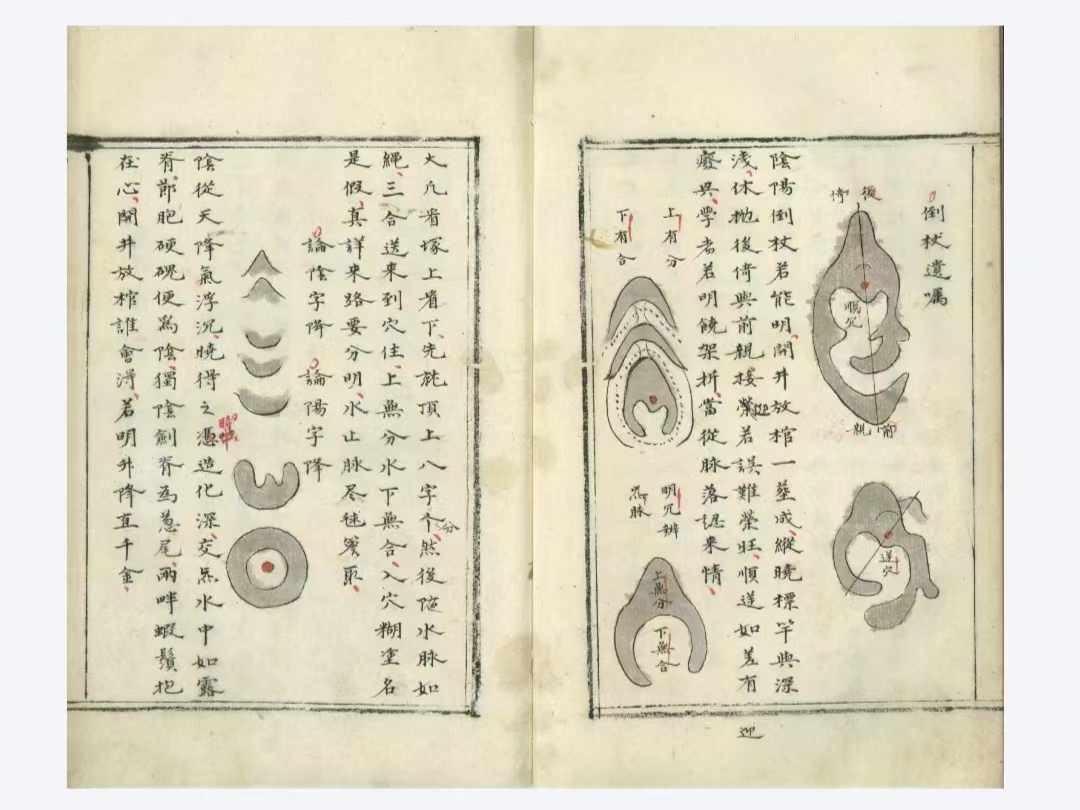 倒杖遺囑
後
倚
順穴
前
親
逆穴
陰陽倒杖若能明開井放棺一塟成縱曉標竿與深
淺休拋後倚與前親接縈迎若誤難榮旺順逆如差有
廢興學者若明饒架折當從脉落認来情
上有分
下有合
明穴辨
脉
上無分
下無合
迎
大凡省塚上省下先毬頂上八字个分然後隂水脉如
繩三合送来到穴住上無分水下無合入穴糊塗名
是假真詳来路要分明水止脉尽毬簷取
論陰字降 論陽字降
陰從天降氣浮沉曉得之憑造化深交水中如露
脊節胞硬磈便為陰獨陰劍脊為葱尾兩畔蝦鬚抱
在心開井放棺誰會淂若明升降直千金